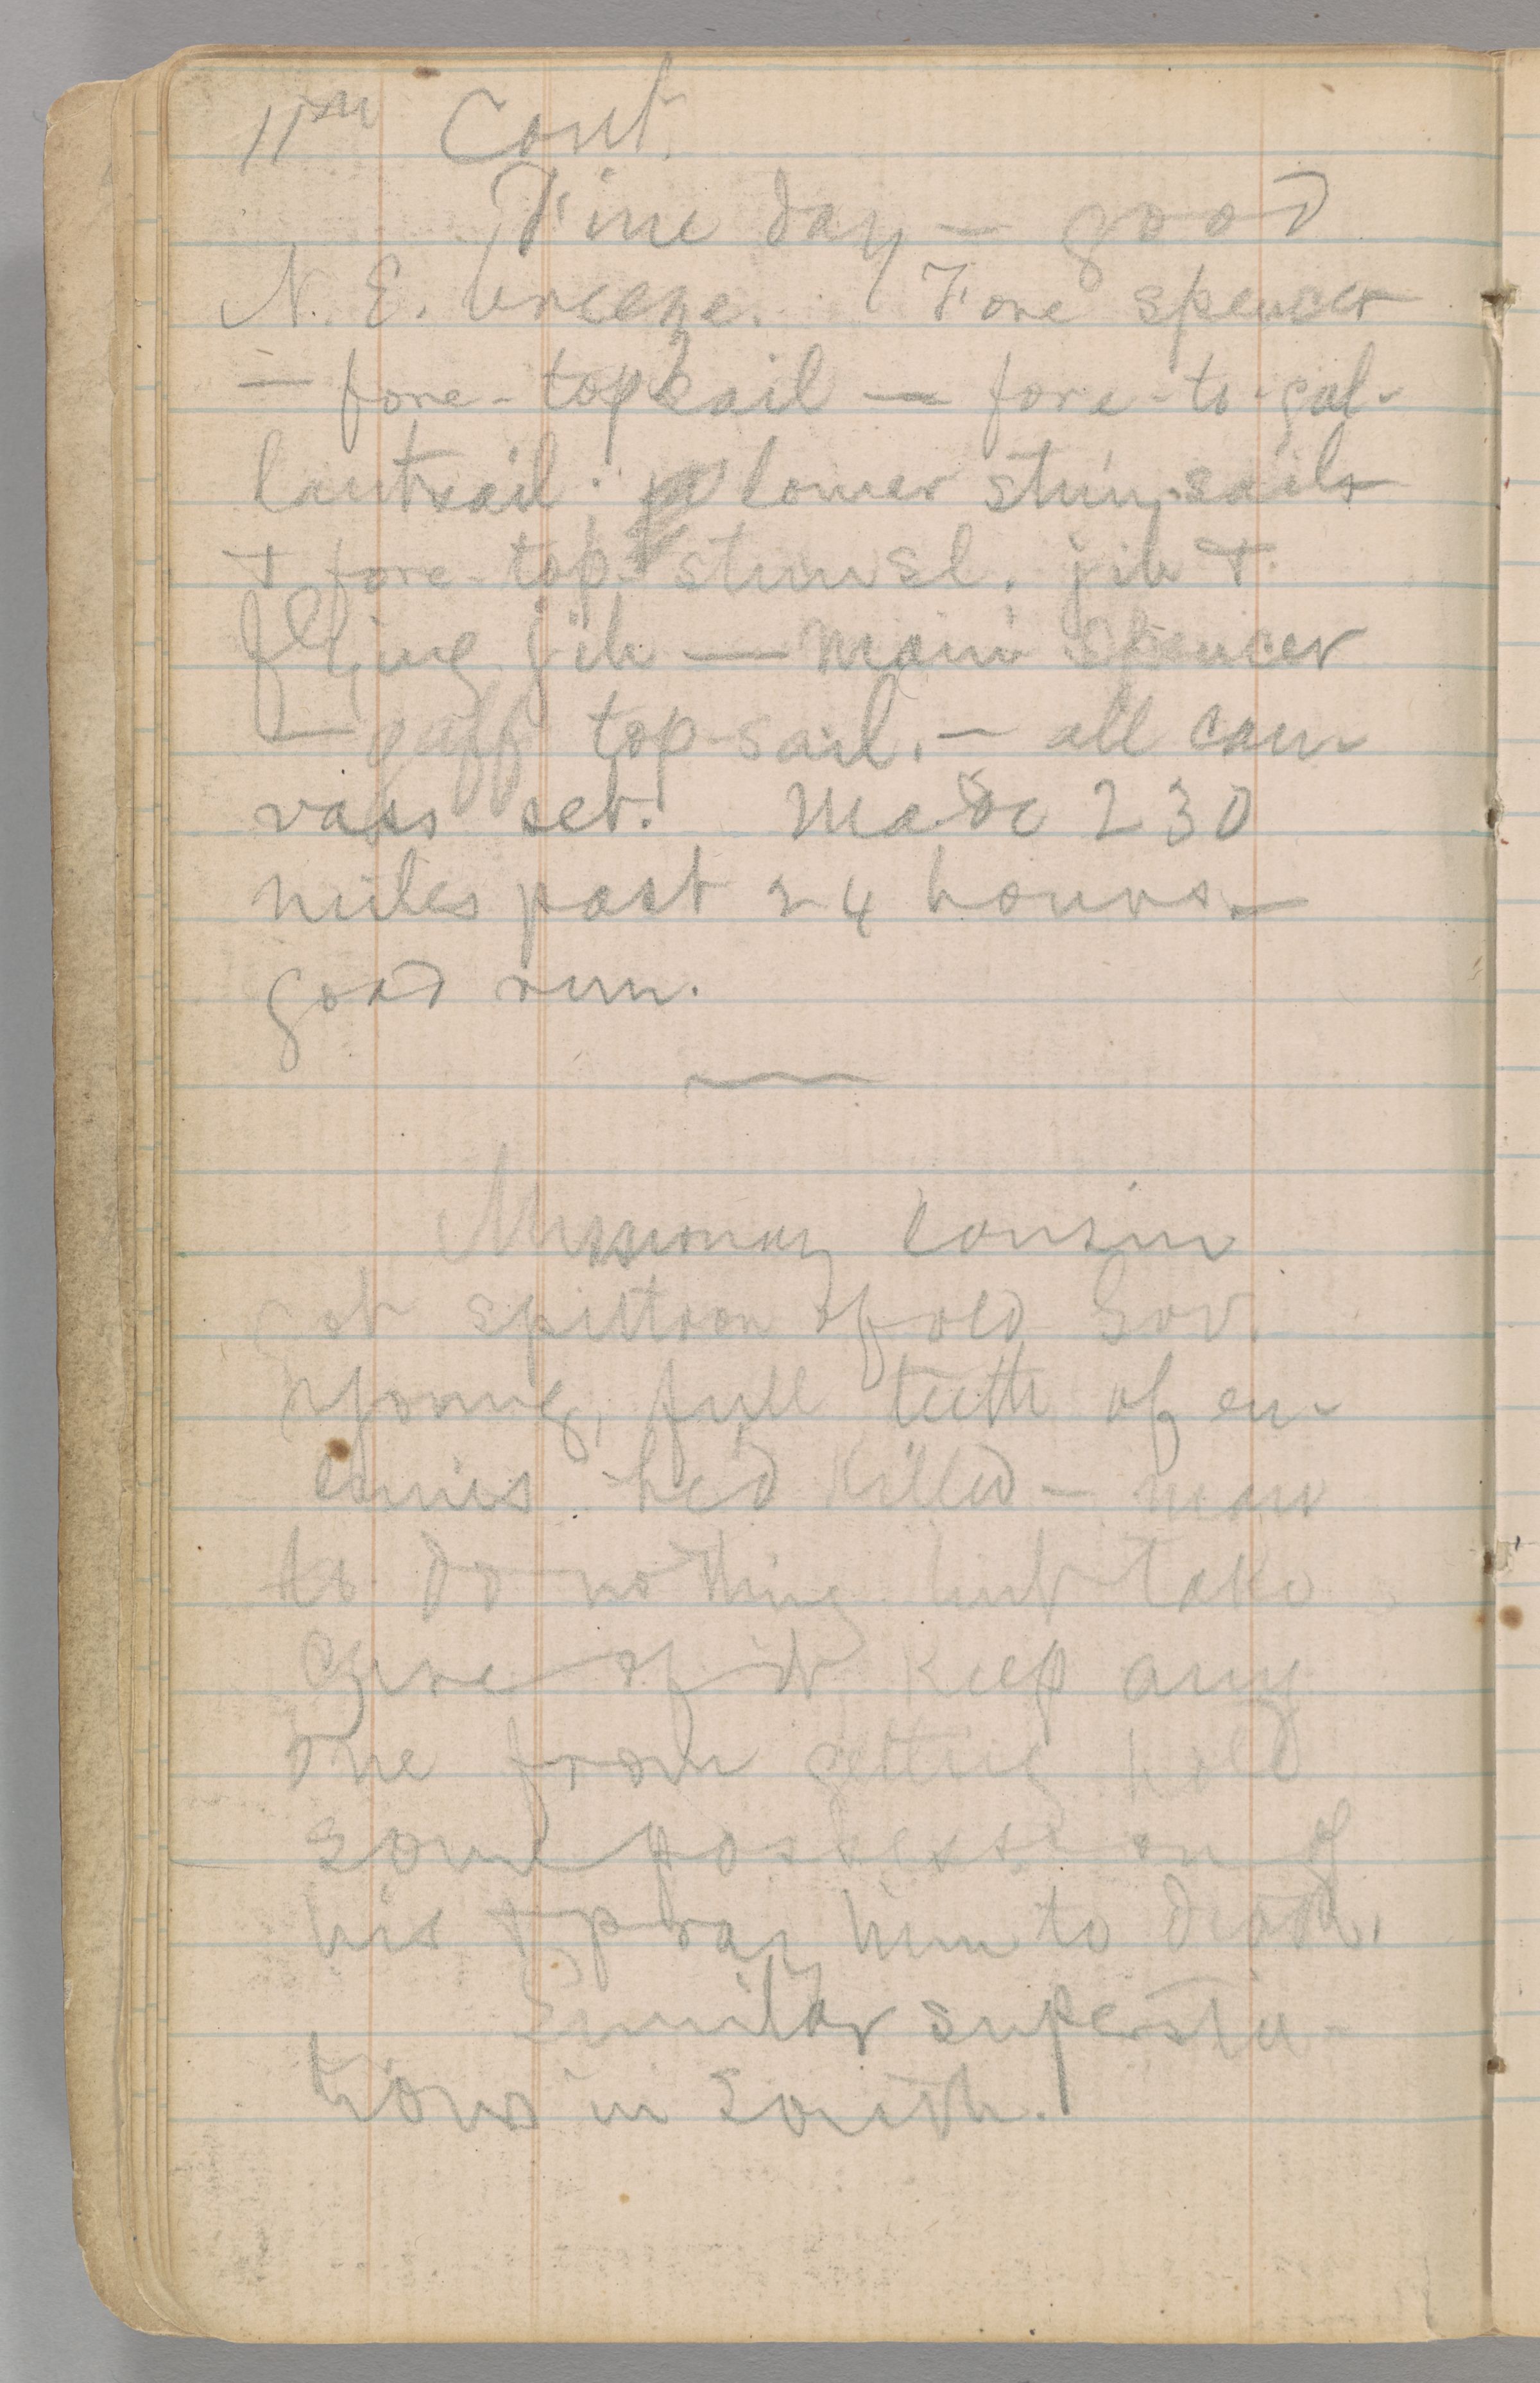 11th Cont.
Fine day — good
N. E. breeze. Fore spencer
— fore-topsail — fore-to-gal-
lantsail; lower stun-sails
& fore-top-stunsl. jib &
flying jib — main spencer
— gaff top-sail. — all can-
vass set. Made 230
miles past 24 hours —
good run.
Missionary cousin
got spittoon of old Gov.
Young, full teeth of en-
emies he'd killed — man
to do nothing but take
care of it, keep any
one from getting hold
some possession of
his & pray him to death.
Similar supersti-
tions in South.